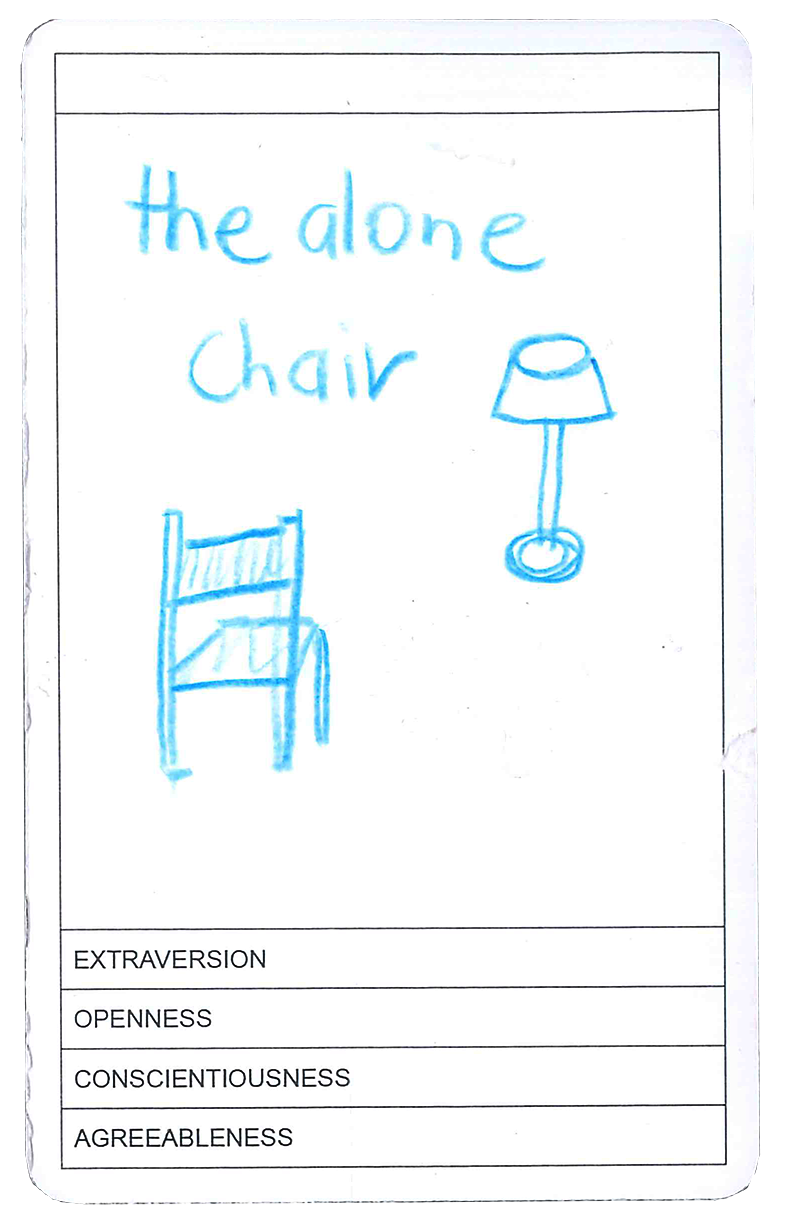 the alone
chair
EXTRAVERSION
OPENNESS
CONSCIENTIOUSNESS
AGREEABLENESS